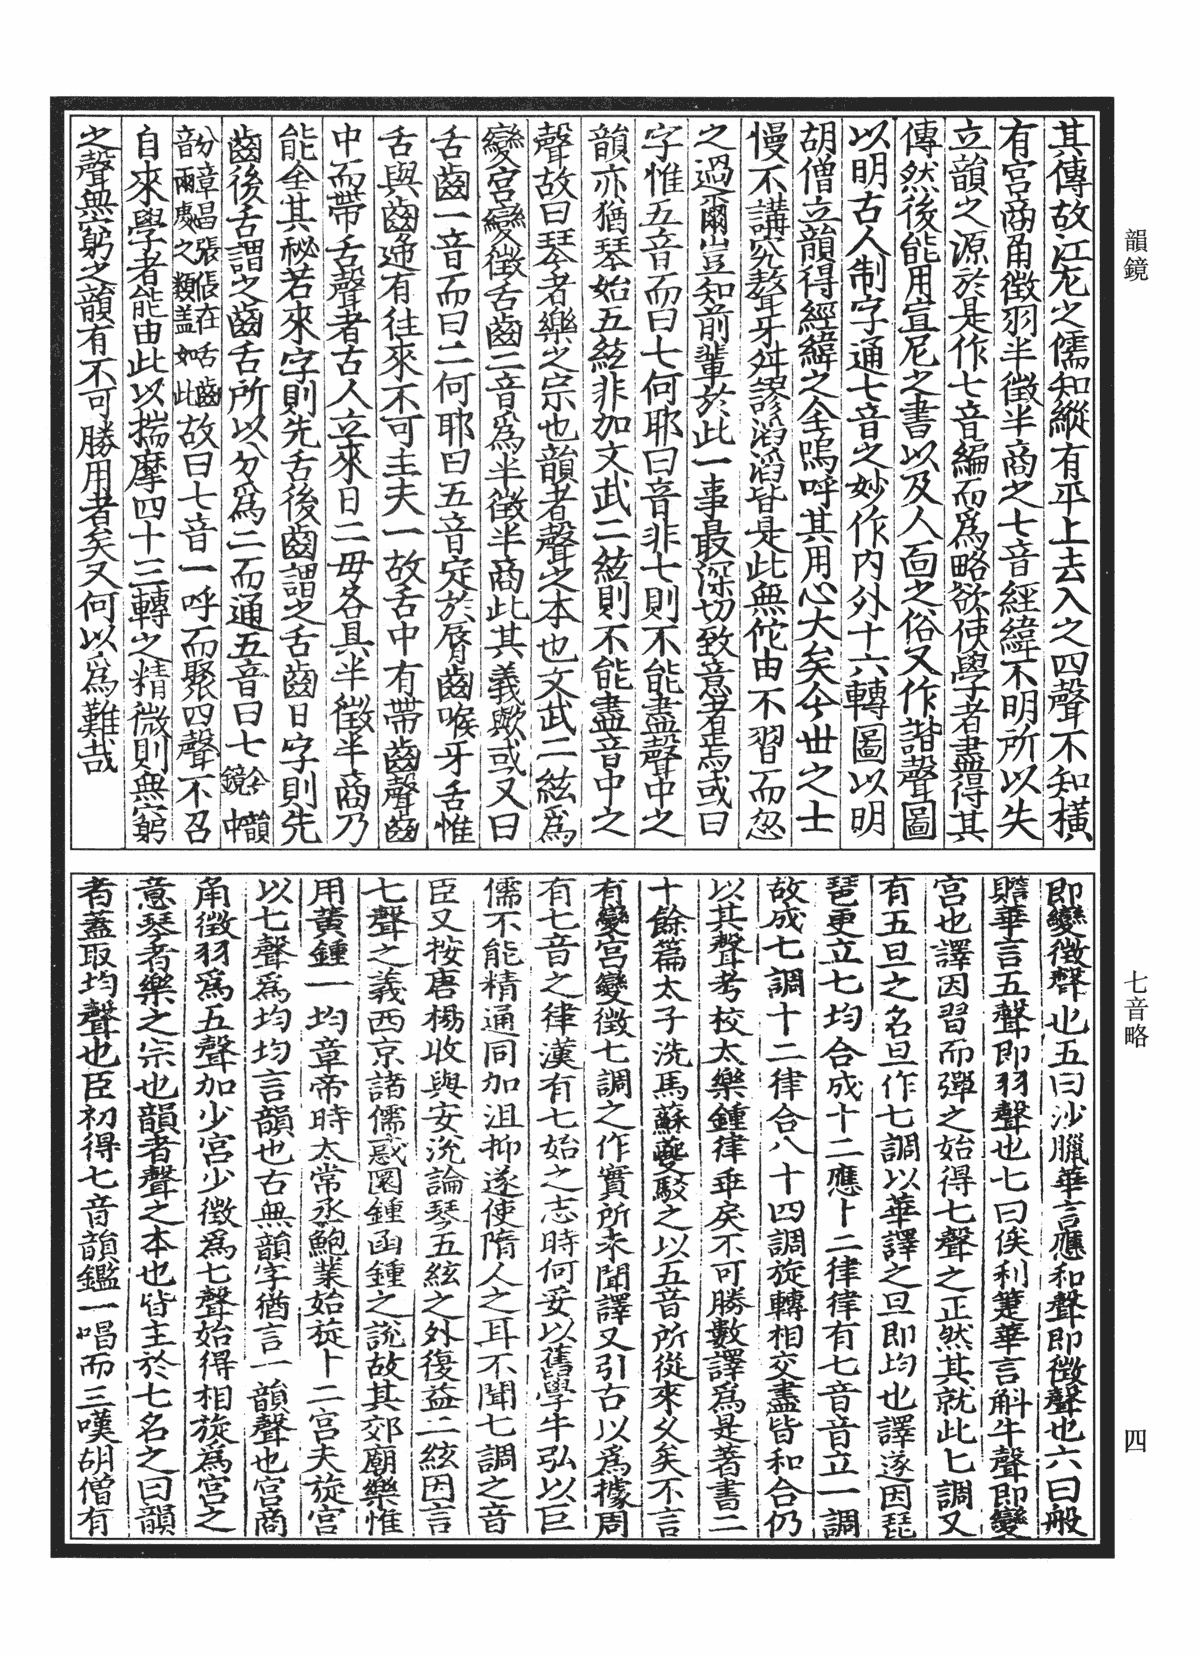 韻鏡
其傳故江左之儒知縱有平上去入之四聲不知橫
有宮商角徵羽半徵半商之七音經緯不明所以失
立韻之源於是作七音編而爲略欲使學者盡得其
傳然後能用宣尼之書以及人面之俗又作諧聲圖
以明古人制字通七音之妙作內外十六轉圖以明
胡僧立韻得經緯之全嗚呼其用心大矣今世之士
慢不講究聱牙舛謬滔滔皆是此無佗由不習而忽
之過爾豈知前輩於此一事最深切致意者焉或曰
字惟五音而曰七何耶曰音非七則不能盡聲中之
韻亦猶琴始五絃非加文武二絃則不能盡音中之
聲故曰琴者樂之宗也韻者聲之本也文武二絃爲
變宮變徵舌齒二音爲半徵半商此其義歟或又曰
舌齒一音而曰二何耶曰五音定於脣齒喉牙舌惟
舌與齒遞有往來不可主夫一故舌中有帶齒聲齒
中而帶舌聲者古人立來日二毋各具半徵半商乃
能全其秘若來字則先舌後齒謂之舌齒日字則先
齒後舌謂之齒舌所以分爲二而通五音曰七今韻鏡中
分章昌張倀在舌齒音兩處之類蓋如此故曰七音一呼而聚四聲不召
自來學者能由此以揣摩四十三轉之精微則無窮
之聲無窮之韻有不可勝用者矣又何以爲難哉
七音略
四
即變徵聲也五曰沙臘華言應和聲即徵聲也六曰般
贍華言五聲即羽聲也七曰俟利箑華言斛牛聲即變
宮也譯因習而彈之始得七聲之正然其就此七調又
有五旦之名旦作七調以華譯之旦即均也譯遂因琵
琶更立七均合成十二應十二律律有七音音立一調
故成七調十二律合八十四調旋轉相交盡皆和合仍
以其聲考校太樂鍾律乖戾不可勝數譯爲是著書二
十餘篇太子洗馬蘇夔駁之以五音所從來久矣不言
有變宮變徵七調之作實所未聞譯又引古以爲據周
有七音之律漢有七始之志時何妥以舊學牛弘以巨
儒不能精通同加沮抑遂使隋人之耳不聞七調之音
臣又按唐楊收與安涗論琴五絃之外復益二絃因言
七聲之義西京諸儒惑圜鍾函鍾之說故其郊廟樂惟
用黃鍾一均章帝時太常丞鮑業始旋十二宮夫旋宮
以七聲爲均均言韻也古無韻字猶言一韻聲也宮商
角徵羽爲五聲加少宮少徵爲七聲始得相旋爲宮之
意琴者樂之宗也韻者聲之本也皆主於七名之曰韻
者蓋取均聲也臣初得七音韻鑑一唱而三嘆胡僧有